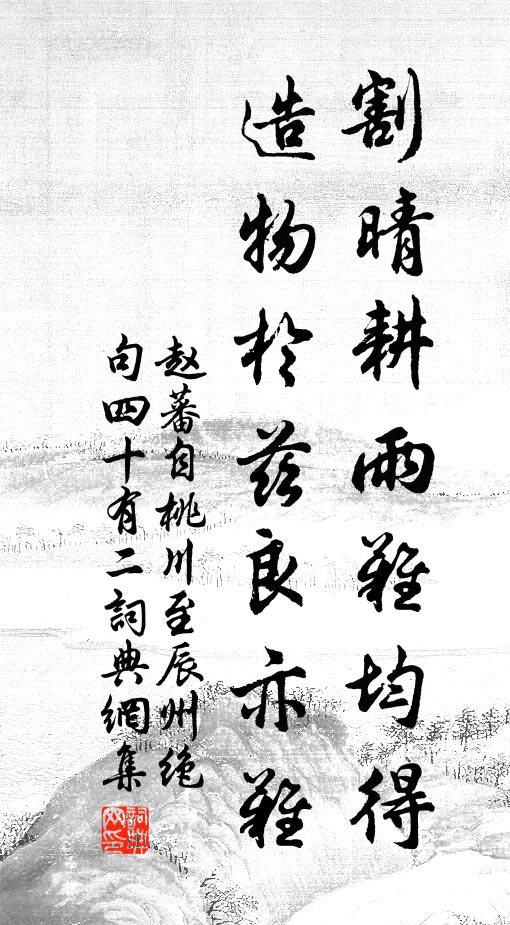 割晴耕雨難均得
造物於茲良亦難
趙蕃自桃川至辰州絕
句四十有二詞典網集